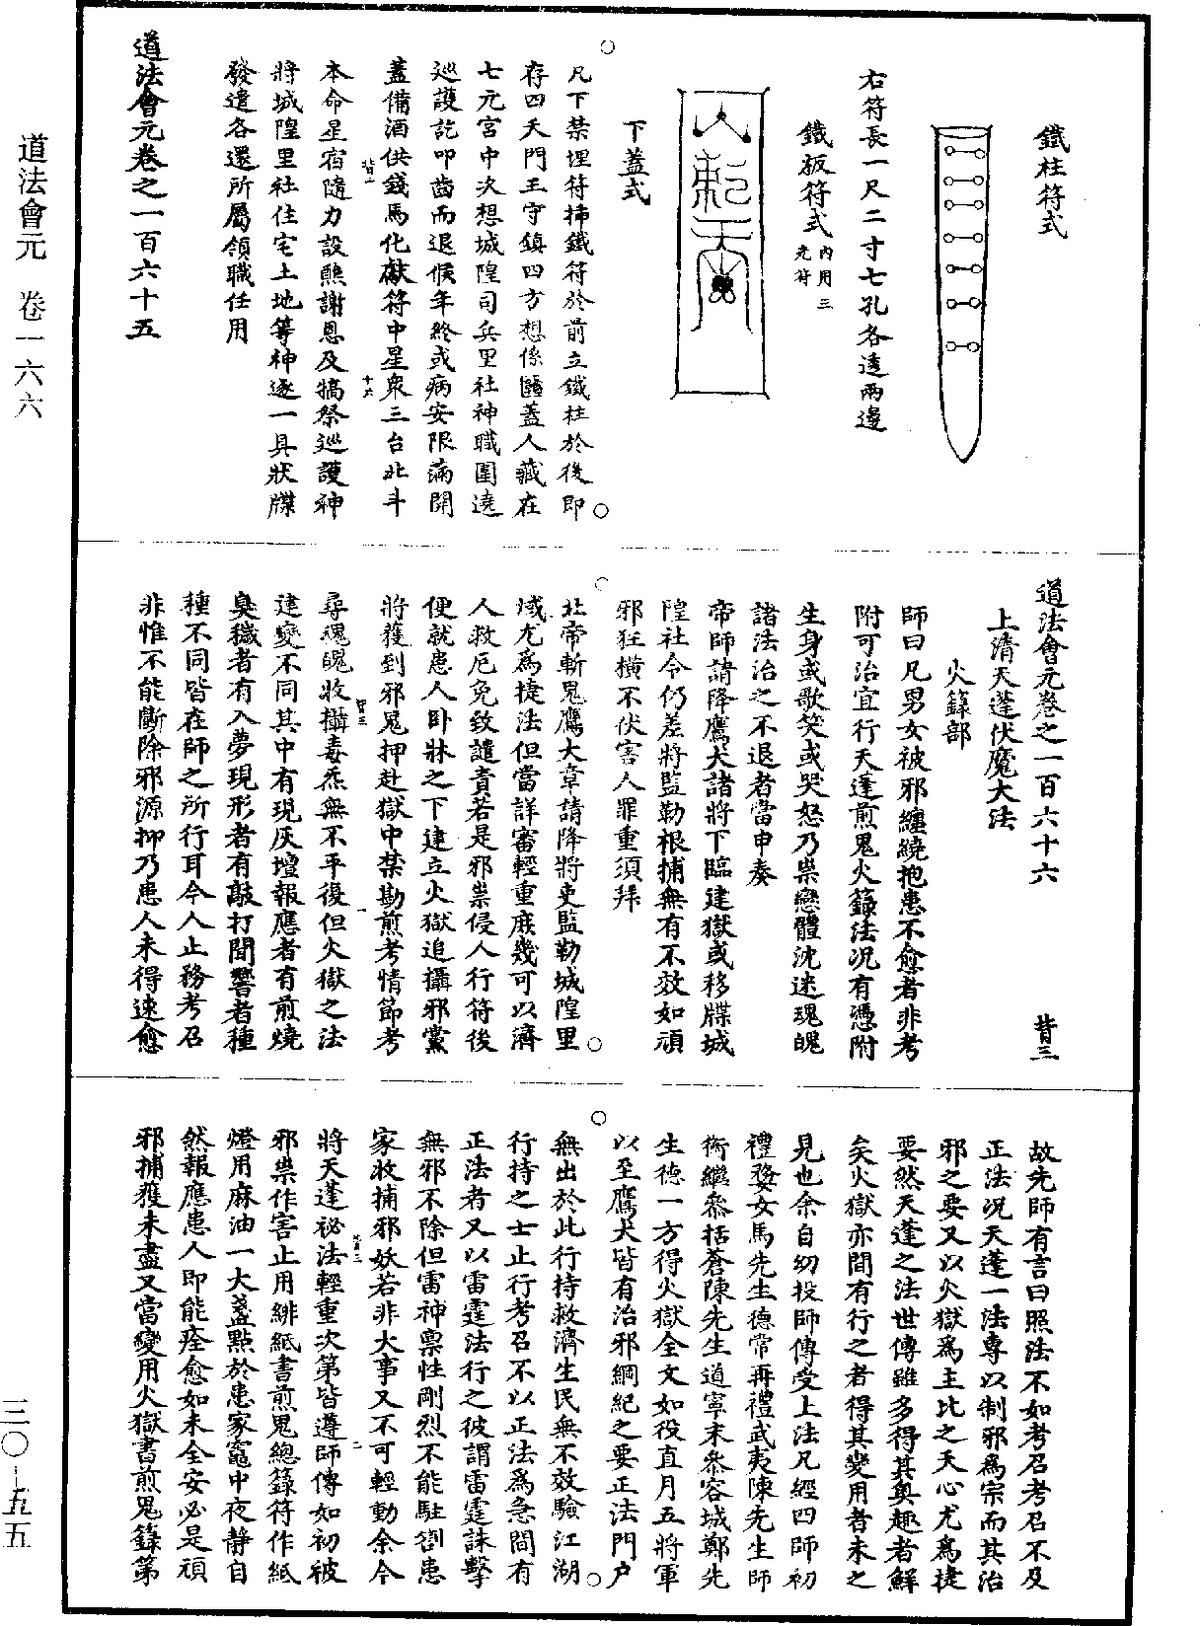 道法會元　卷一六六
鐵柱符式
右符長一尺二寸七孔各透兩邊
鐵板符式內用三光符
下蓋式
凡下禁埋符揷鐵符於前立鐵柱於後即
存四天門王守鎮四方想係䰠蓋人藏在
七元宮中次想城隍司兵里社神職圍遶
巡護訖叩齒而退候年終或病安限滿開
蓋備酒供錢馬化獻符中星衆三台北斗
本命星宿隨力設醮謝恩及犒祭巡護神
將城隍里社住宅土地等神逐一具狀牒
發遣各還所屬領職任用
道法會元卷之一百六十五
道法會元卷之一百六十六　背三
上清天蓬伏魔大法
火籙部
師曰凡男女被邪纏繞抱患不愈者非考
附可治宜行天蓬煎鬼火籙法況有憑附
生身或歌笑或哭怒乃祟戀體沈迷魂魄
諸法治之不退者當申奏
帝師請降鷹犬諸將下臨建獄或移牒城
隍社令仍差將監勒根捕無有不效如頑
邪狂橫不伏害人罪重須拜
北帝斬鬼鷹犬章請降將吏監勒城隍里
域尤爲捷法但當詳審輕重庶幾可以濟
人救厄免致譴責若是邪祟侵人行符後
便就患人卧牀之下建立火獄追攝邪黨
將獲到邪鬼押赴獄中禁勘煎考情節考
尋魂魄收攝毒炁無不平復但火獄之法
建變不同其中有現灰壇報應者有煎燒
臭穢者有入夢現形者有敲打聞響者種
種不同皆在師之所行耳今人止務考召
非惟不能斷除邪源抑乃患人未得速愈
故先師有言曰照法不如考召考召不及
正法況天蓬一法專以制邪爲宗而其治
邪之要又以火獄爲主比之天心尤爲捷
要然天蓬之法世傳雖多得其奧趣者鮮
矣火獄亦間有行之者得其變用者未之
見也余自幼投師傳受上法凡經四師初
禮婺女馬先生德常再禮武夷陳先生師
衡繼叅括蒼陳先生道寧末叅容城鄭先
生德一方得火獄全文如役直月五將軍
以至鷹犬皆有治邪綱紀之要正法門户
無出於此行持救濟生民無不效驗江湖
行持之士止行考召不以正法爲急間有
正法者又以雷霆法行之彼謂雷霆誅擊
無邪不除但雷神禀性剛烈不能駐劄患
家收捕邪妖若非大事又不可輕動余今
將天蓬祕法輕重次第皆遵師傳如初被
邪祟作害止用緋紙書煎鬼總籙符作紙
燈用麻油一大盞點於患家竈中夜靜自
然報應患人即能痊愈如未全安必是頑
邪捕獲未盡又當變用火獄書煎鬼籙第
三〇—五五